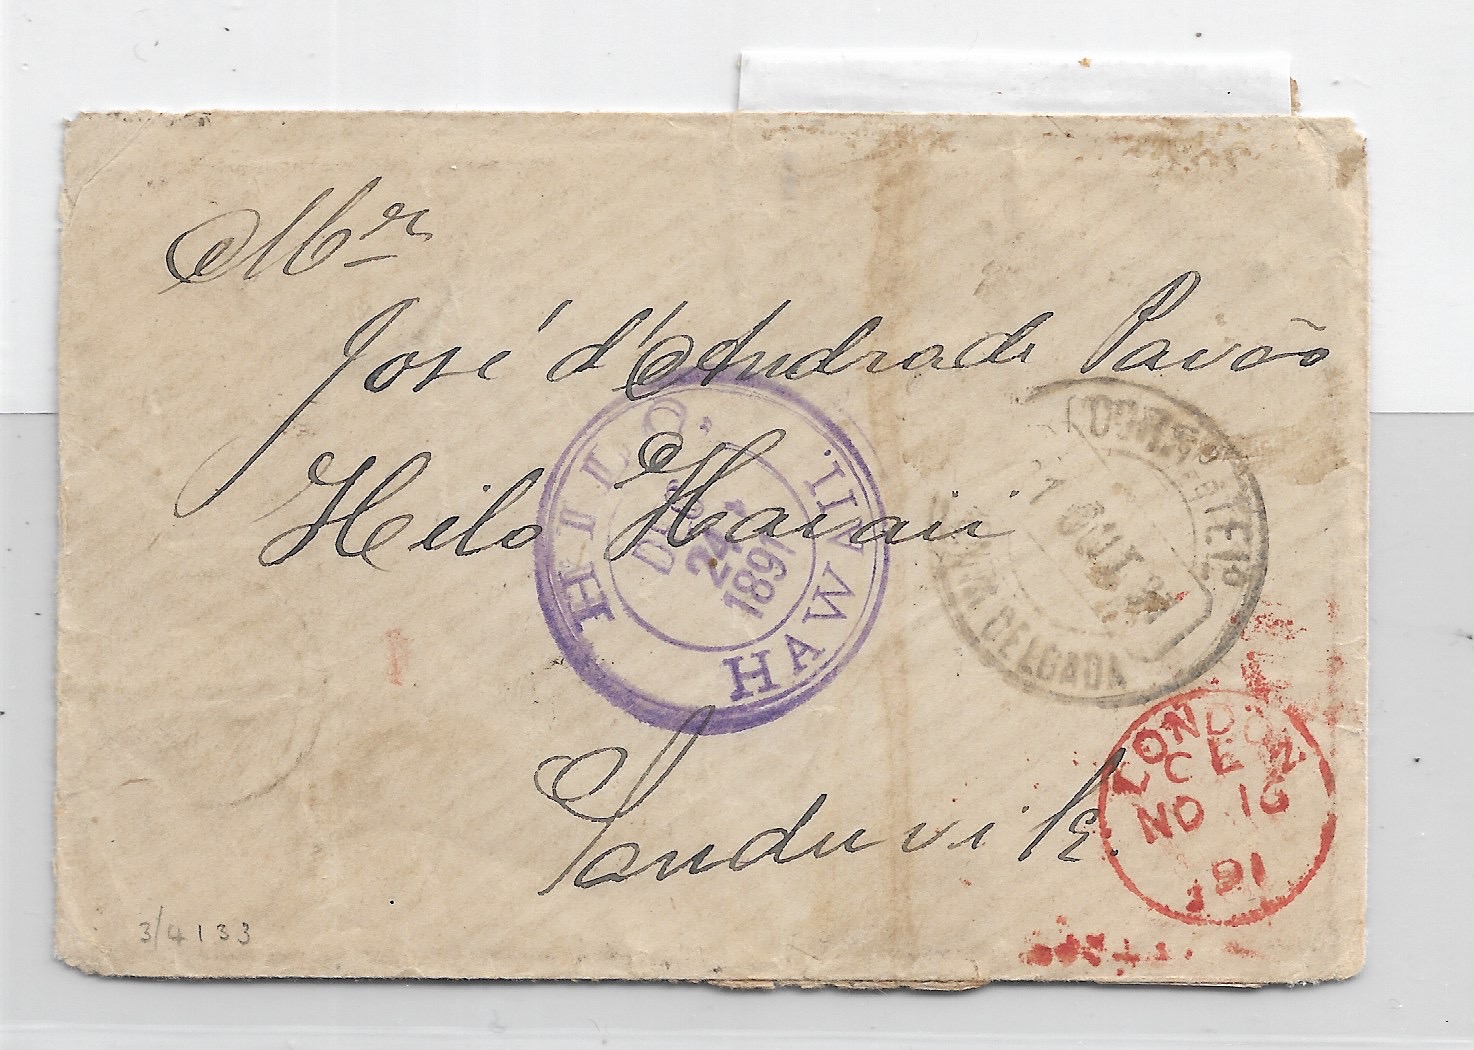 Mr
José d'Andrade Pavão
Hilo Havaii
Sanduvik.
HILO,
HAWAII.
DEC
24
1891
PONTA DELGADA
OUT 91
LONDON
CE Z
NO 16
91
3/4133